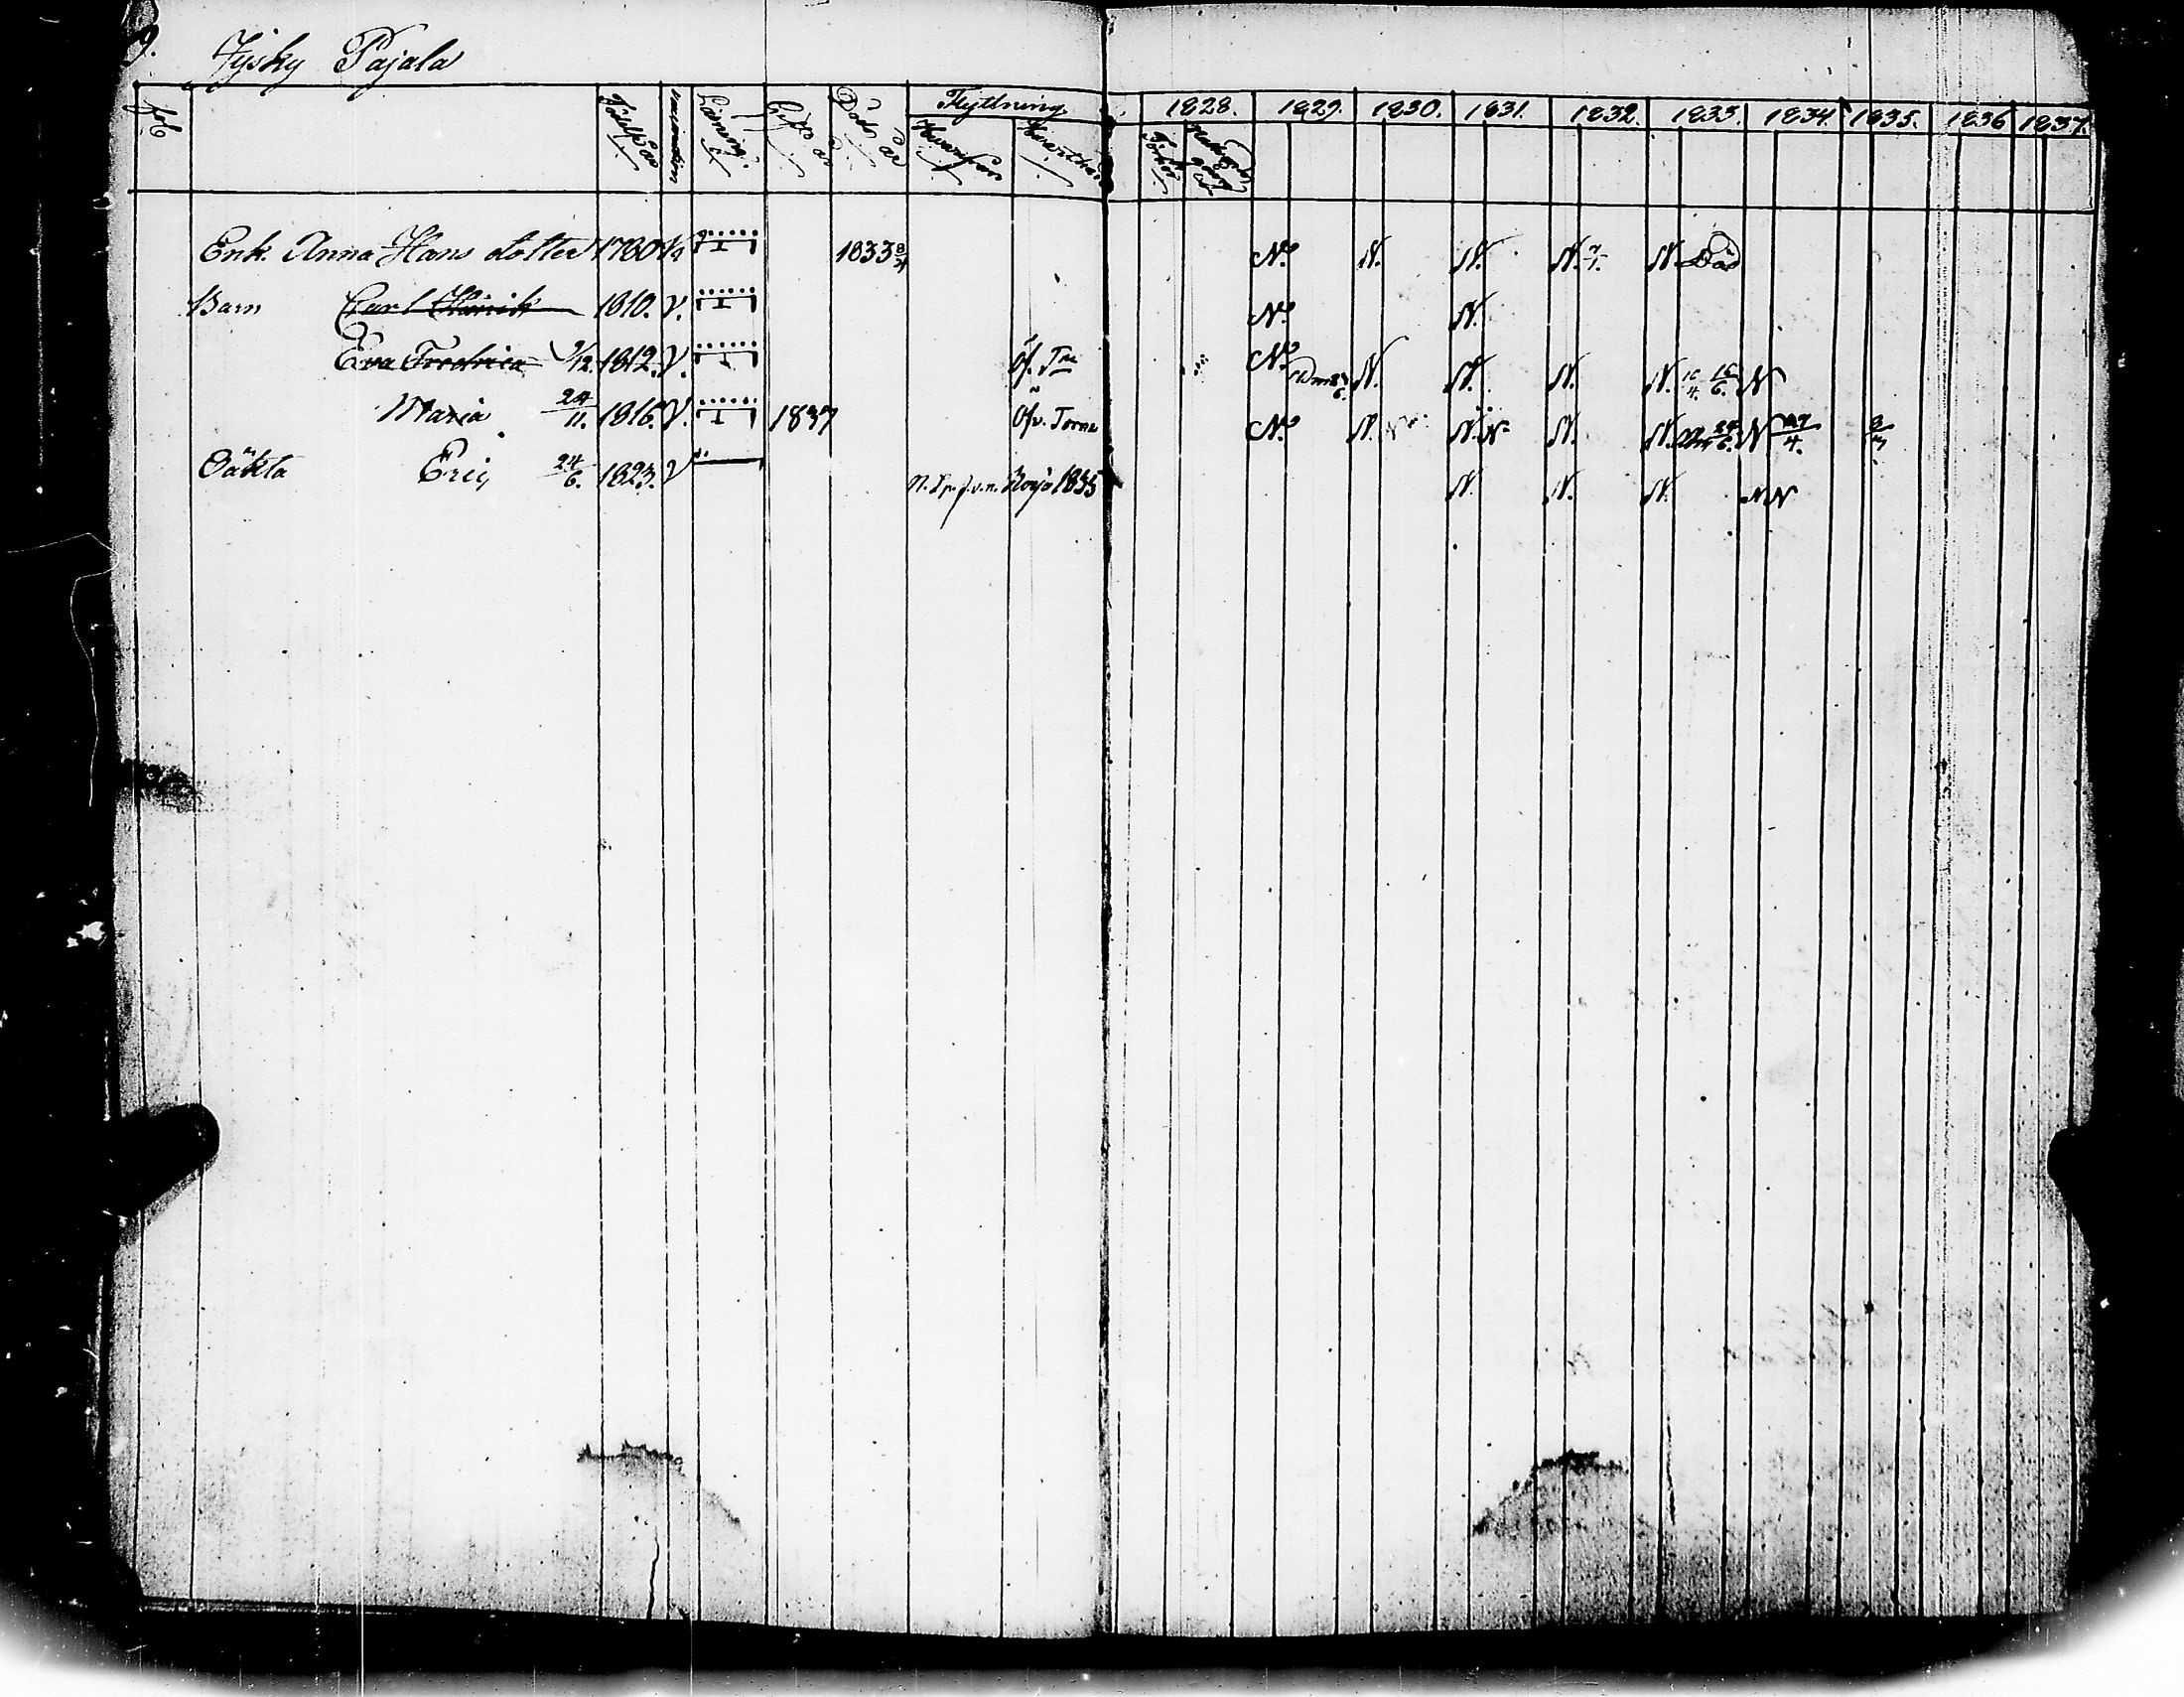 9. Jysky Pajala
Födelse år Vaccination Läsning Gift år Död år Flyttning Hvarifrån Hvarthän 1828. 1829. 1830. 1831. 1832. 1833. 1834. 1835. 1836 1837.
Enk. Anna Hans dotter 1780 V. 1833 8/4 N. N. N. N. 7/1. N. Död
Barn Carl Henrik 1810. V. N. N.
Eva Fredrica 1/12. 1812. V. Öf. Tne N. N. N. N. N. 16/6. N
Maria 24/11. 1816. V. 1837 Öfv. Torne N. N. N. N. N. N. 24/6. N 27/4. 3/3
Oäkta Eric 24/6. 1823. V 1835 N. N. N. N N